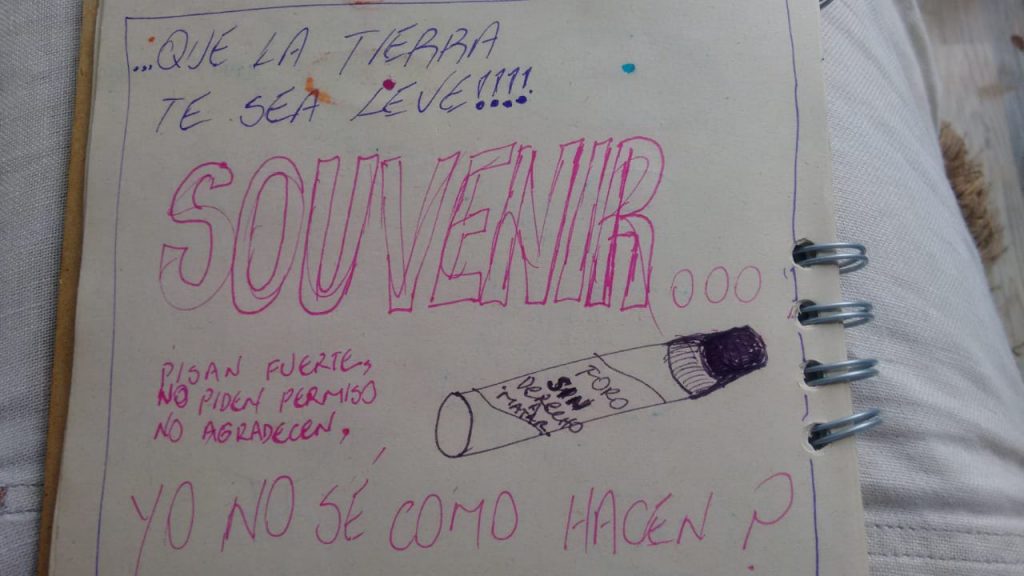 ...QUE LA TIERRA
TE SEA LEVE!!!!
SOUVENIR...
PISAN FUERTE,
NO PIDEN PERMISO
NO AGRADECEN,
TORO
SIN
DERECHO
A
MATAR
YO NO SÉ COMO HACEN?